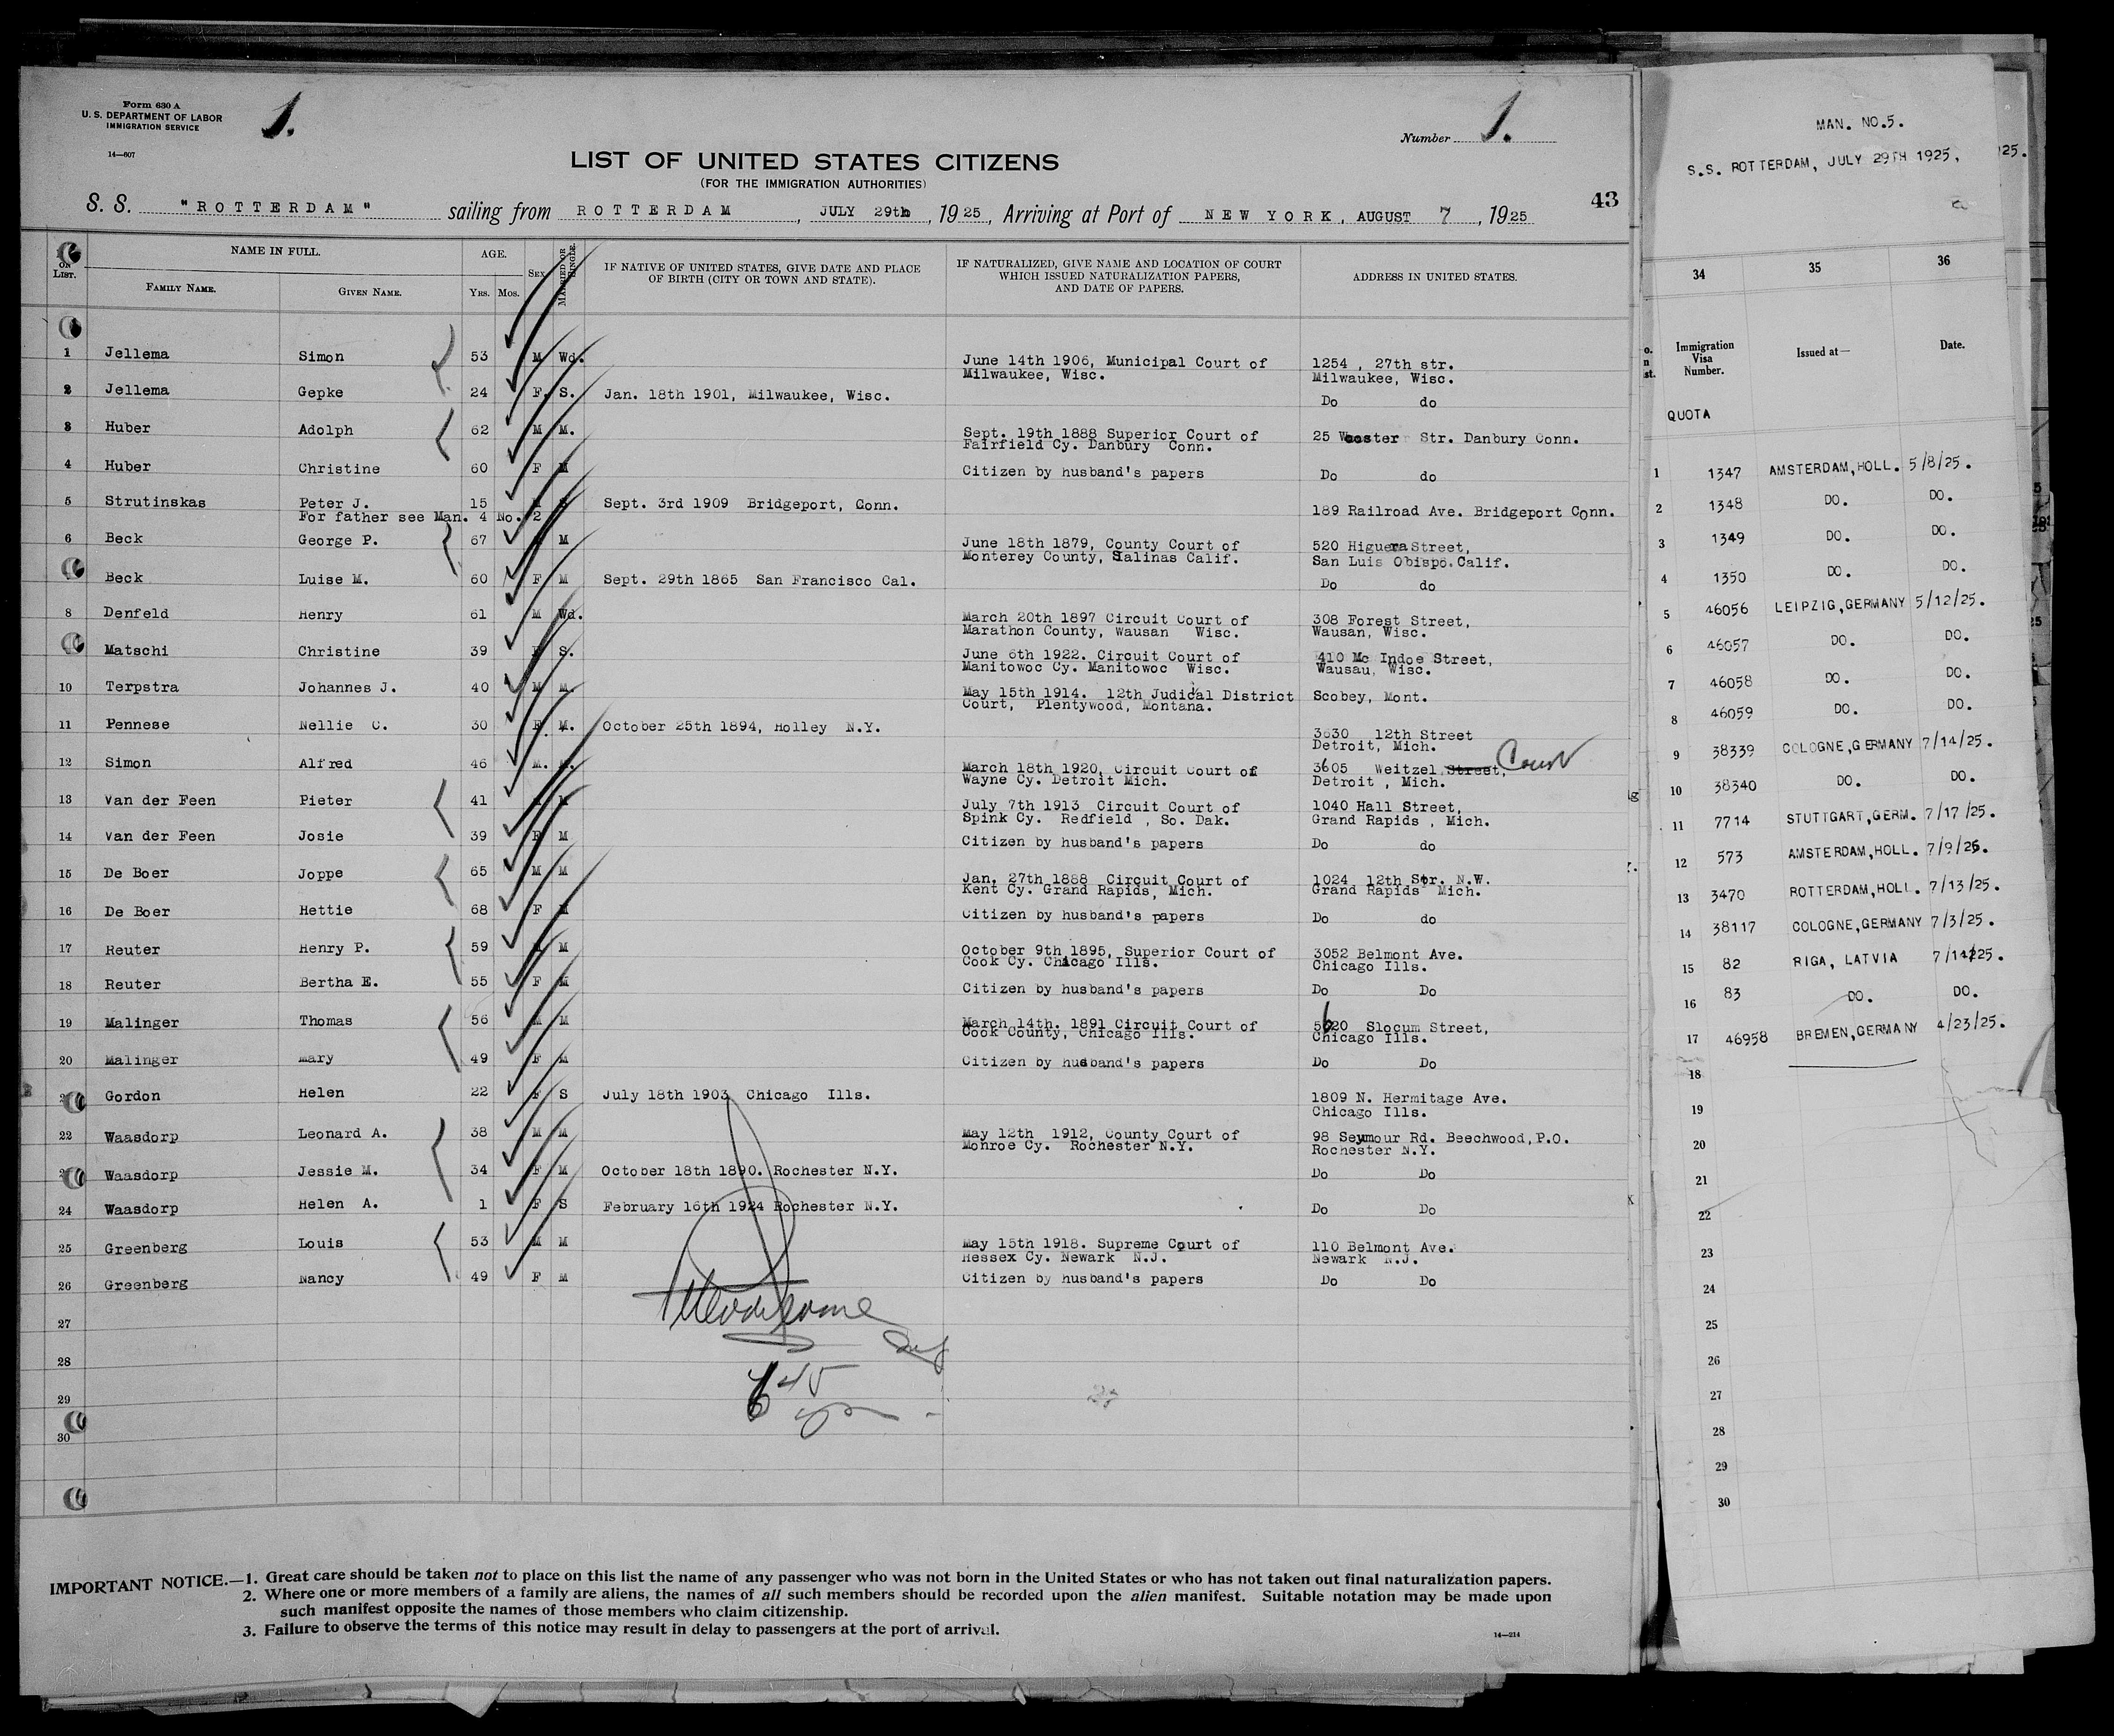 Form 630 A
U. S. DEPARTMENT OF LABOR
IMMIGRATION SERVICE
14—607
1.
Number 1.
LIST OF UNITED STATES CITIZENS
(FOR THE IMMIGRATION AUTHORITIES)
43
S. S. "ROTTERDAM" sailing from ROTTERDAM, JULY 29th, 1925, Arriving at Port of NEW YORK, AUGUST 7, 1925
ON LIST. NAME IN FULL. FAMILY NAME. GIVEN NAME. AGE. YRS. MOS. SEX. MARRIED OR SINGLE. IF NATIVE OF UNITED STATES, GIVE DATE AND PLACE OF BIRTH (CITY OR TOWN AND STATE). IF NATURALIZED, GIVE NAME AND LOCATION OF COURT WHICH ISSUED NATURALIZATION PAPERS, AND DATE OF PAPERS. ADDRESS IN UNITED STATES.
1 Jellema Simon 53 M Wd. June 14th 1906, Municipal Court of 1254 , 27th str.
Milwaukee, Wisc. Milwaukee, Wisc.
2 Jellema Gepke 24 F. S. Jan. 18th 1901, Milwaukee, Wisc. Do do
3 Huber Adolph 62 M M. Sept. 19th 1888 Superior Court of 25 Str. Danbury Conn.
Fairfield Cy. Danbury Conn.
4 Huber Christine 60 F M Citizen by husband's papers Do do
5 Strutinskas Peter J. 15 M S Sept. 3rd 1909 Bridgeport, Conn. 189 Railroad Ave. Bridgeport Conn.
For father see Man. 4 No. 2
6 Beck George P. 67 M June 18th 1879, County Court of 520 Higuera Street,
Monterey County, Salinas Calif. San Luis Obispo. Calif.
Beck Luise M. 60 F M Sept. 29th 1865 San Francisco Cal. Do do
8 Denfeld Henry 61 M Wd. March 20th 1897 Circuit Court of 308 Forest Street,
Marathon County, Wausan Wisc. Wausan, Wisc.
Matschi Christine 39 F S. June 6th 1922. Circuit Court of 410 Mc Indoe Street,
Manitowoc Cy. Manitowoc Wisc. Wausau, Wisc.
10 Terpstra Johannes J. 40 M M. May 15th 1914. 12th Judical District Scobey, Mont.
Court, Plentywood, Montana.
11 Pennese Nellie C. 30 F. M. October 25th 1894, Holley N.Y. 3630 12th Street
Detroit, Mich.
12 Simon Alfred 46 M. M. March 18th 1920, Circuit Court of 3605 Weitzel Street, Court
Wayne Cy. Detroit Mich. Detroit , Mich.
13 Van der Feen Pieter 41 M M July 7th 1913 Circuit Court of 1040 Hall Street,
Spink Cy. Redfield , So. Dak. Grand Rapids , Mich.
14 Van der Feen Josie 39 F M Citizen by husband's papers Do do
15 De Boer Joppe 65 M M Jan. 27th 1888 Circuit Court of 1024 12th Str. N.W.
Kent Cy. Grand Rapids, Mich. Grand Rapids Mich.
16 De Boer Hettie 68 F M Citizen by husband's papers Do do
17 Reuter Henry P. 59 M M October 9th 1895, Superior Court of 3052 Belmont Ave.
Cook Cy. Chicago Ills. Chicago Ills.
18 Reuter Bertha E. 55 F M Citizen by husband's papers Do Do
19 Malinger Thomas 56 M M March 14th. 1891 Circuit Court of 5620 Slocum Street,
Cook County, Chicago Ills. Chicago Ills.
20 Malinger Mary 49 F M Citizen by husband's papers Do Do
Gordon Helen 22 F S July 18th 1903 Chicago Ills. 1809 N. Hermitage Ave.
Chicago Ills.
22 Waasdorp Leonard A. 38 M M May 12th 1912, County Court of 98 Seymour Rd. Beechwood, P.O.
Monroe Cy. Rochester N.Y. Rochester N.Y.
Waasdorp Jessie M. 34 F M October 18th 1890. Rochester N.Y. Do Do
24 Waasdorp Helen A. 1 F S February 16th 1924 Rochester N.Y. Do Do
25 Greenberg Louis 53 M M May 15th 1918. Supreme Court of 110 Belmont Ave.
Hessex Cy. Newark N.J. Newark N.J.
26 Greenberg Nancy 49 F M Citizen by husband's papers Do Do
27
28
29
30
6 45
IMPORTANT NOTICE.—1. Great care should be taken not to place on this list the name of any passenger who was not born in the United States or who has not taken out final naturalization papers.
2. Where one or more members of a family are aliens, the names of all such members should be recorded upon the alien manifest. Suitable notation may be made upon
such manifest opposite the names of those members who claim citizenship.
3. Failure to observe the terms of this notice may result in delay to passengers at the port of arrival.
14—214
MAN. NO.5.
S.S. ROTTERDAM, JULY 29TH 1925,
25.
34 35 36
Immigration Visa Number. Issued at— Date.
QUOTA
1 1347 AMSTERDAM,HOLL. 5/8/25.
2 1348 DO. DO.
3 1349 DO. DO.
4 1350 DO. DO.
5 46056 LEIPZIG,GERMANY 5/12/25.
6 46057 DO. DO.
7 46058 DO. DO.
8 46059 DO. DO.
9 38339 COLOGNE,GERMANY 7/14/25.
10 38340 DO. DO.
11 7714 STUTTGART,GERM. 7/17/25.
12 573 AMSTERDAM,HOLL. 7/9/25.
13 3470 ROTTERDAM,HOLL. 7/13/25.
14 38117 COLOGNE,GERMANY 7/3/25.
15 82 RIGA, LATVIA 7/14/25.
16 83 DO. DO.
17 46958 BREMEN,GERMANY 4/23/25.
18
19
20
21
22
23
24
25
26
27
28
29
30